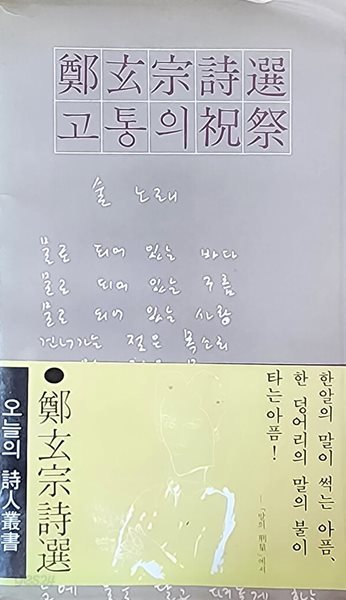 鄭玄宗詩選
고통의祝祭
술 노래
물로 되어 있는 바다
물로 되어 있는 구름
물로 되어 있는 사랑
건너가는 젊은 목소리
한알의 말이 썩는 아픔,
한 덩어리의 말의 불이
타는아픔!
―「말의 刑量」에서
●鄭玄宗詩選
오늘의 詩人叢書
yes24